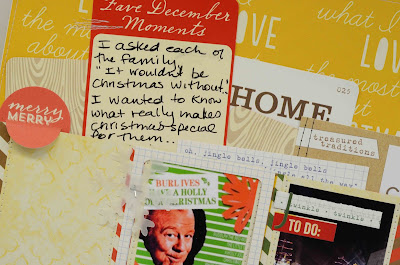 Fave December
Moments
I asked each of
the family,
"It wouldn't be
Christmas without..."
I wanted to know
what really makes
christmas special
for them..
what I
LOVE
the most
about
LOVE
HOME
025
merry
MERRY
treasured
traditions
oh, jingle bells, jingle bells
jingle all the way
BURL IVES
HAVE A HOLLY
JOLLY CHRISTMAS
twinkle * twinkle
TO DO: